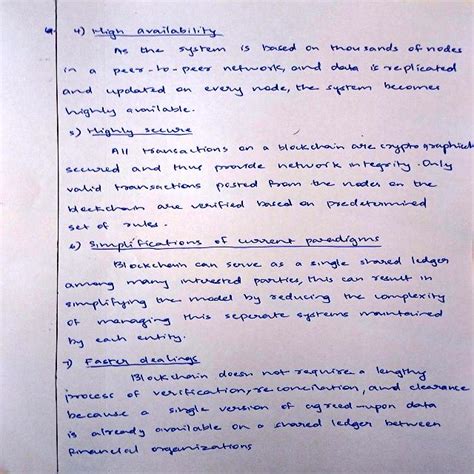 4) High availability
As the system is based on thousands of nodes
in a peer-to-peer network, and data is replicated
and updated on every node, the system becomes
highly available.
5) Highly secure
All transactions on a blockchain are cryptographically
secured and thus provide network integrity. Only
valid transactions posted from the nodes on the
blockchain are verified based on predetermined
set of rules.
6) Simplifications of current paradigms
Blockchain can serve as a single shared ledger
among many interested parties, this can result in
simplifying the model by reducing the complexity
of managing this seperate systems maintained
by each entity.
7) Faster dealings
Blockchain doesn not require a lengthy
process of verification, reconcilation, and clearance
because a single version of agreed-upon data
is already available on a shared ledger between
financial organizations